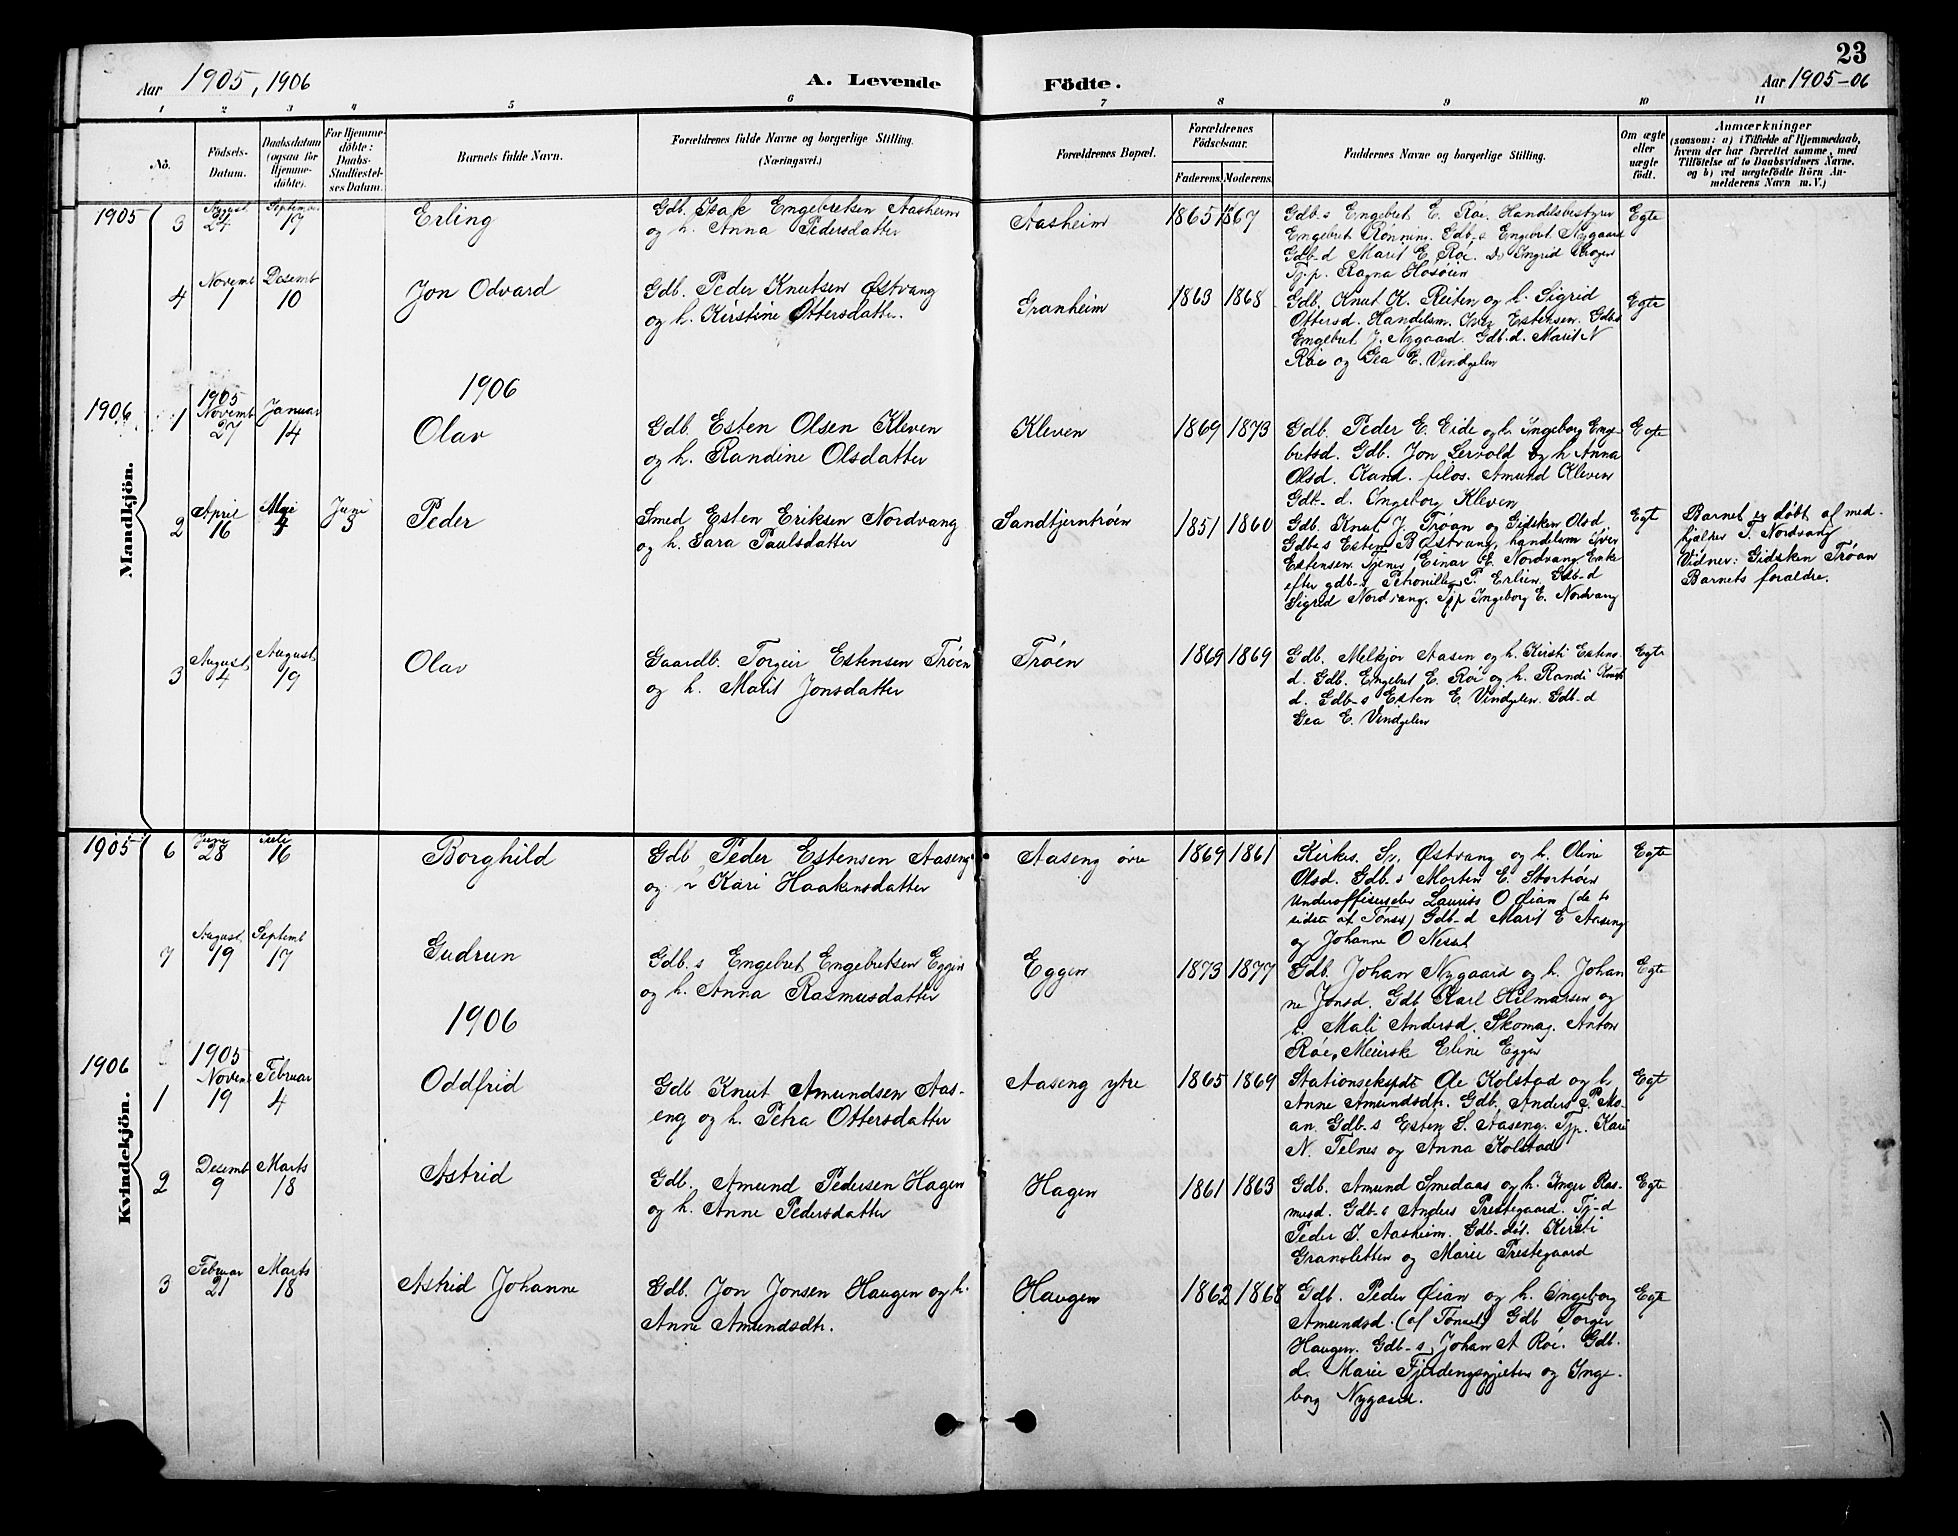 23
Aar 1905, 1906
A. Levende Födte.
Aar 1905-06
1 2 3 4 5 6 7 8 9 10 11
No.
Födsels-
Datum.
Daabsdatum
(ogsaa for
Hjemme-
döbte).
For Hjemme-
döbte:
Daabs-
Stadfæstel-
ses Datum.
Barnets fulde Navn.
Forældrenes fulde Navne og borgerlige Stilling.
(Næringsvei.)
Forældrenes Bopæl.
Forældrenes
Födselsaar.
Faderens. Moderens.
Faddernes Navne og borgerlige Stilling.
Om ægte
eller
uægte
födt.
Anmærkninger
(saasom: a) i Tilfælde af Hjemmedaab,
hvem der har forrettet samme, med
Tilföielse af to Daabsvidners Navne.
og b) ved uægtefödte Börn An-
melderens Navn m. V.)
Mandkjön.
1905
3
August
24
Septemb
17
Erling
Gdb. Isak Engebretsen Aasheim
og h. Anna Pedersdatter
Aasheim
1865 1867
Gdb-s Engebret E. Røe. Handelsbestyrer
Engebret Rønning. Gdb-s Engebret Nygaard
Gdb-d Marit E. Røe. Ds Ingrid
Tj.p. Ragna Hosøien
Egte
4
Novemb
1
Desemb
10
Jon Odvard
Gdb. Peder Knutsen Østvang
og h. Kirstine Ottersdatter.
Granheim
1863 1868
Gdb. Knut K. Reiten og h. Sigrid
Ottersd. Handelsm. Iver Estensen. Gdb-s
Engebret J. Nygaard. Gdb.d. Marit N
Røe og Gea E. Vindgelen
Egte
1906
1906
1
1905
Novemb
27
Januar
14
Olav
Gdb. Esten Olsen Kleven
og h. Randine Olsdatter
Kleven
1869 1873
Gdb. Peder E. Eide og h. Ingeborg Enge-
bretsd. Gdb. Jon Lervold og h Anna
Olsd. Kand. filos. Amund Kleven
Gdb-d. Ingeborg Kleven
Egte
2
April
16
Mai
4
Juni
3
Peder
Smed Esten Eriksen Nordvang
og h. Sara Paulsdatter
Sandtjerntrøen
1851 1860
Gdb. Knut J. Trøan og Gidsken Olsd
Gdb-s Esten B Østvang, handelsm Iver
Estensen. Tjener Einar E. Nordvang. Enke
efter gdb-s Petronille P. Erlien. Gdb-d
Sigrid Nordvang. Tjp Ingeborg E. Nordvang
Egt
Barnet er døbt af med-
hjælper T. Nordvang
Vidner: Gidsken Trøan
Barnets foraldre.
3
August
4
August
19
Olav
Gaardb. Torgeir Estensen Trøen
og h. Marit Jonsdatter
Trøen
1869 1869
Gdb. Melkjor Aasen og h. Kirsti Estens-
d. Gdb. Engebret E. Røe og h. Randi Knuts
d. Gdb-s Esten E. Vindgelen. Gdb-d
Gea E. Vindgelen
Egte
Kvindekjön.
1905
6
Juni
28
Juli
16
Borghild
Gdb Peder Estensen Aaseng
og h Kari Haakensdatter
Aaseng øvre
1869 1861
Kirkes. Sv. Østvang og h. Oline
Olsd. Gdb-s Morten E. Stortrøen
Underoffiserselev Laurits O Øian (de to
sidste af Tønset) Gdb-d Marit E Aaseng
og Johanne O Neset
Egte
7
August
19
Septemb
17
Gudrun
Gdb.s Engebret Engebretsen Eggen
og h. Anna Rasmusdatter
Eggen
1873 1877
Gdb. Johan Nygaard og h. Johan
ne Jonsd. Gdb Karl Hilmarsen og
h. Mali Andersd. Skomag. Anton
Røe, Meierske Eline Eggen
Egte
1906
1906
1
1905
Novem
19
Februar
4
Oddfrid
Gdb Knut Amundsen Aas-
eng og h. Petra Ottersdatter
Aaseng ytre
1865 1869
Stationsekspdt Ole Kolstad og h.
Anne Amundsdtr. Gdb. Anders P. Mo-
an. Gdb-s Esten S. Aaseng. Tjp. Kari
N. Telnes og Anna Kolstad
Egt
2
Desemb
9
Marts
18
Astrid
Gdb. Amund Pedersen Hagen
og h. Anne Pedersdatter
Hagen
1861 1863
Gdb. Amund Smedaas og h. Inger Ras-
musd. Gdb-s Anders Prestegaard. Tj-d
Peder I. Aasheim. Gdb-dat. Kirsti
Gransletten og Marie Prestegaard
Egte
3
Februar
21
Marts
18
Astrid Johanne
Gdb. Jon Jonsen Haugen og h.
Anne Amundsdtr.
Haugen
1862 1868
Gdb. Peder Øian og h. Ingeborg
Amundsd. (af Tønset) Gdb Torger
Haugen. Gdb-s, Johan A Røe. Gdb.
d. Marie Fjerdingsgjelten og Inge-
borg Nygaard.
Egte